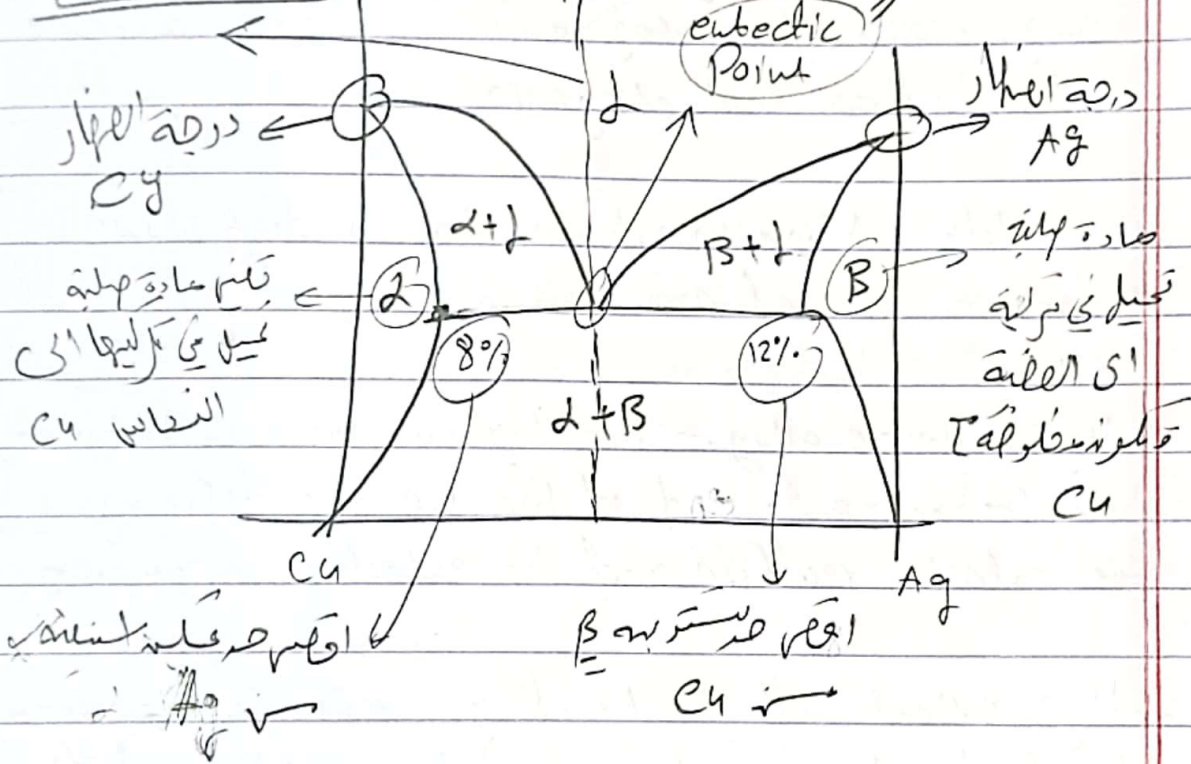 eutectic
Point
L
درجة انصهار
Cu
درجة انصهار
Ag
α+L
β+L
α
B
تعني مادة صلبة
تميل في تركيبها الى
النحاس Cu
مادة صلبة
تميل في تركيبة
الى الفضة
Cu
8%
12%
α+B
Cu
Ag
اقصى حد
من Ag
اقصى حد تستوعبه β
من Cu